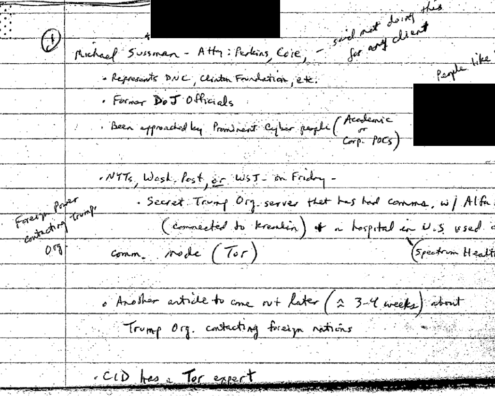 1
Michael Sussman - Atty: Perkins, Coie, - said not doing this
for any client
• Represents DNC, Clinton Foundation, etc.
People like
• Former DoJ Officials
• Been approached by Prominent Cyber people (Academic
or
Corp. POCs)
• NYTs, Wash. Post, or WSJ - on Friday -
• Secret Trump Org. server that has had comms. w/ Alfa
Foreign Power
contacting Trump
Org
(connected to Kremlin) + a hospital in U.S. used
(Spectrum Healt
comm. node (Tor)
• Another article to come out later (≈ 3-4 weeks) about
Trump Org. contacting foreign nations
• CID has a Tor expert